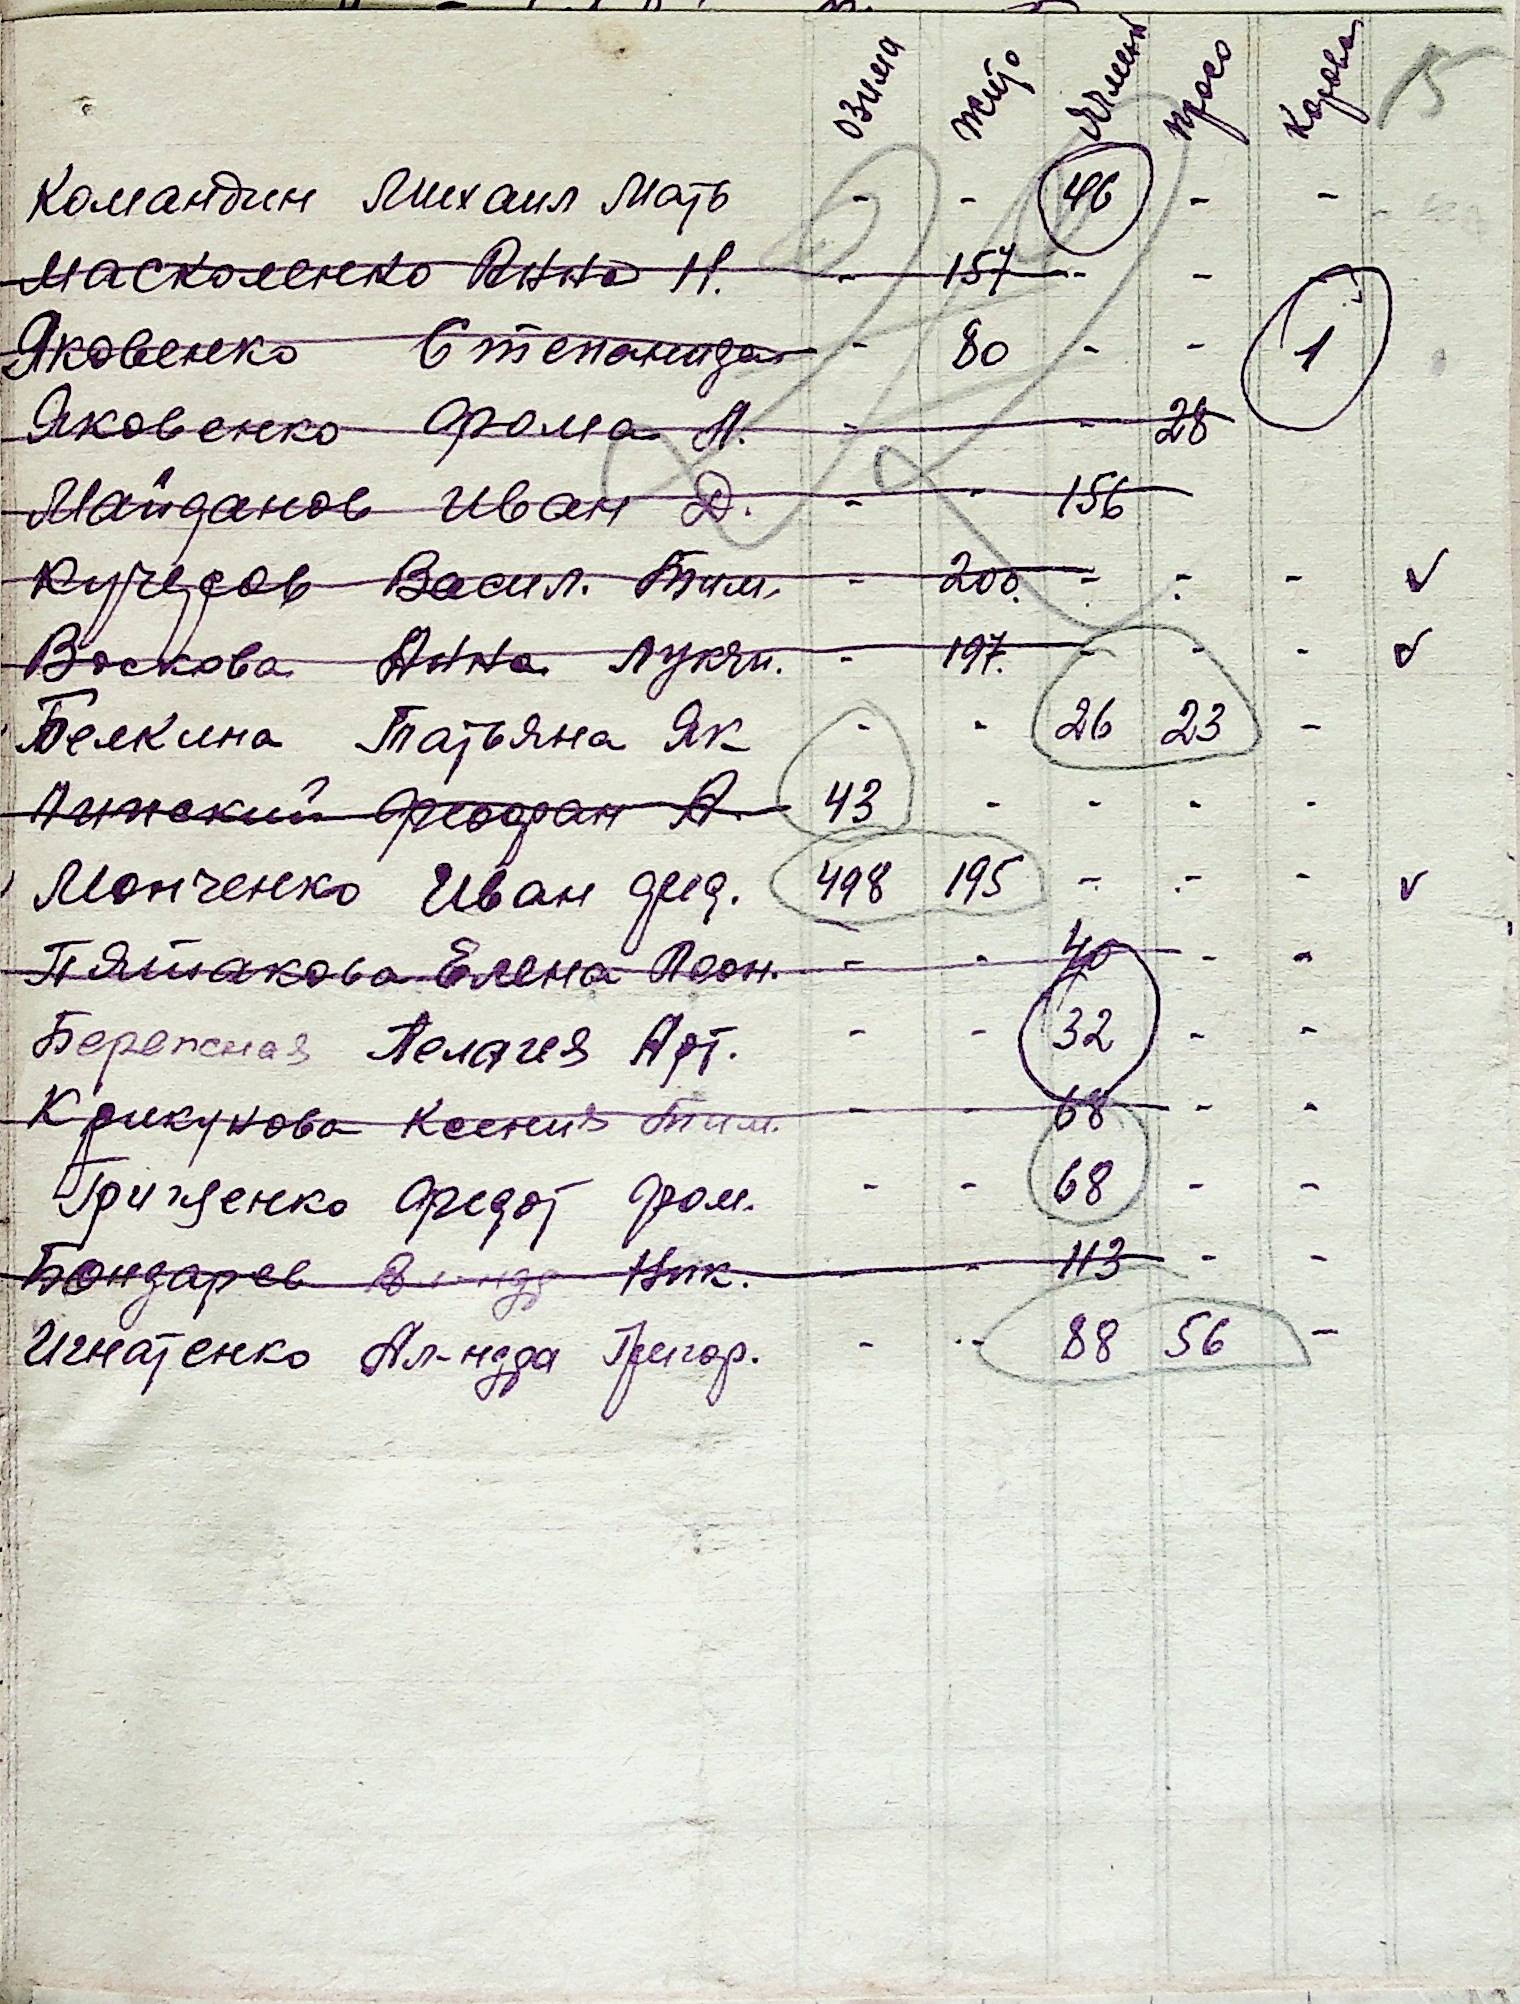 озима жито Ячмень просо Корова 15
Командин Михаил Мать - - 46 - -
Масколенко Анна Н. - 157 - - -
Яковенко Степанида - 80 - - 1
Яковенко Фома А. - - 28
Майданов Иван Д. - - 156
Кучеров Васил. Тим. - 200. - - - ✓
Воскова Анна Лукьи. - 197. - - - ✓
Белкина Татьяна Як - - 26 23 -
Линский Феофан А. 43 - - - -
Монченко Иван Фед. 498 195 - - - ✓
Пятакова Елена Леон. - - 40 - -
Бережная Пелагея Арт. - - 32 - -
Крикунова Ксения Тим. - - 68 - -
Грищенко Федот Ром. - - 68 - -
Бондарев Ник. - - 113 - -
Игнатенко Ал-ндра Григор. - - 88 56 -